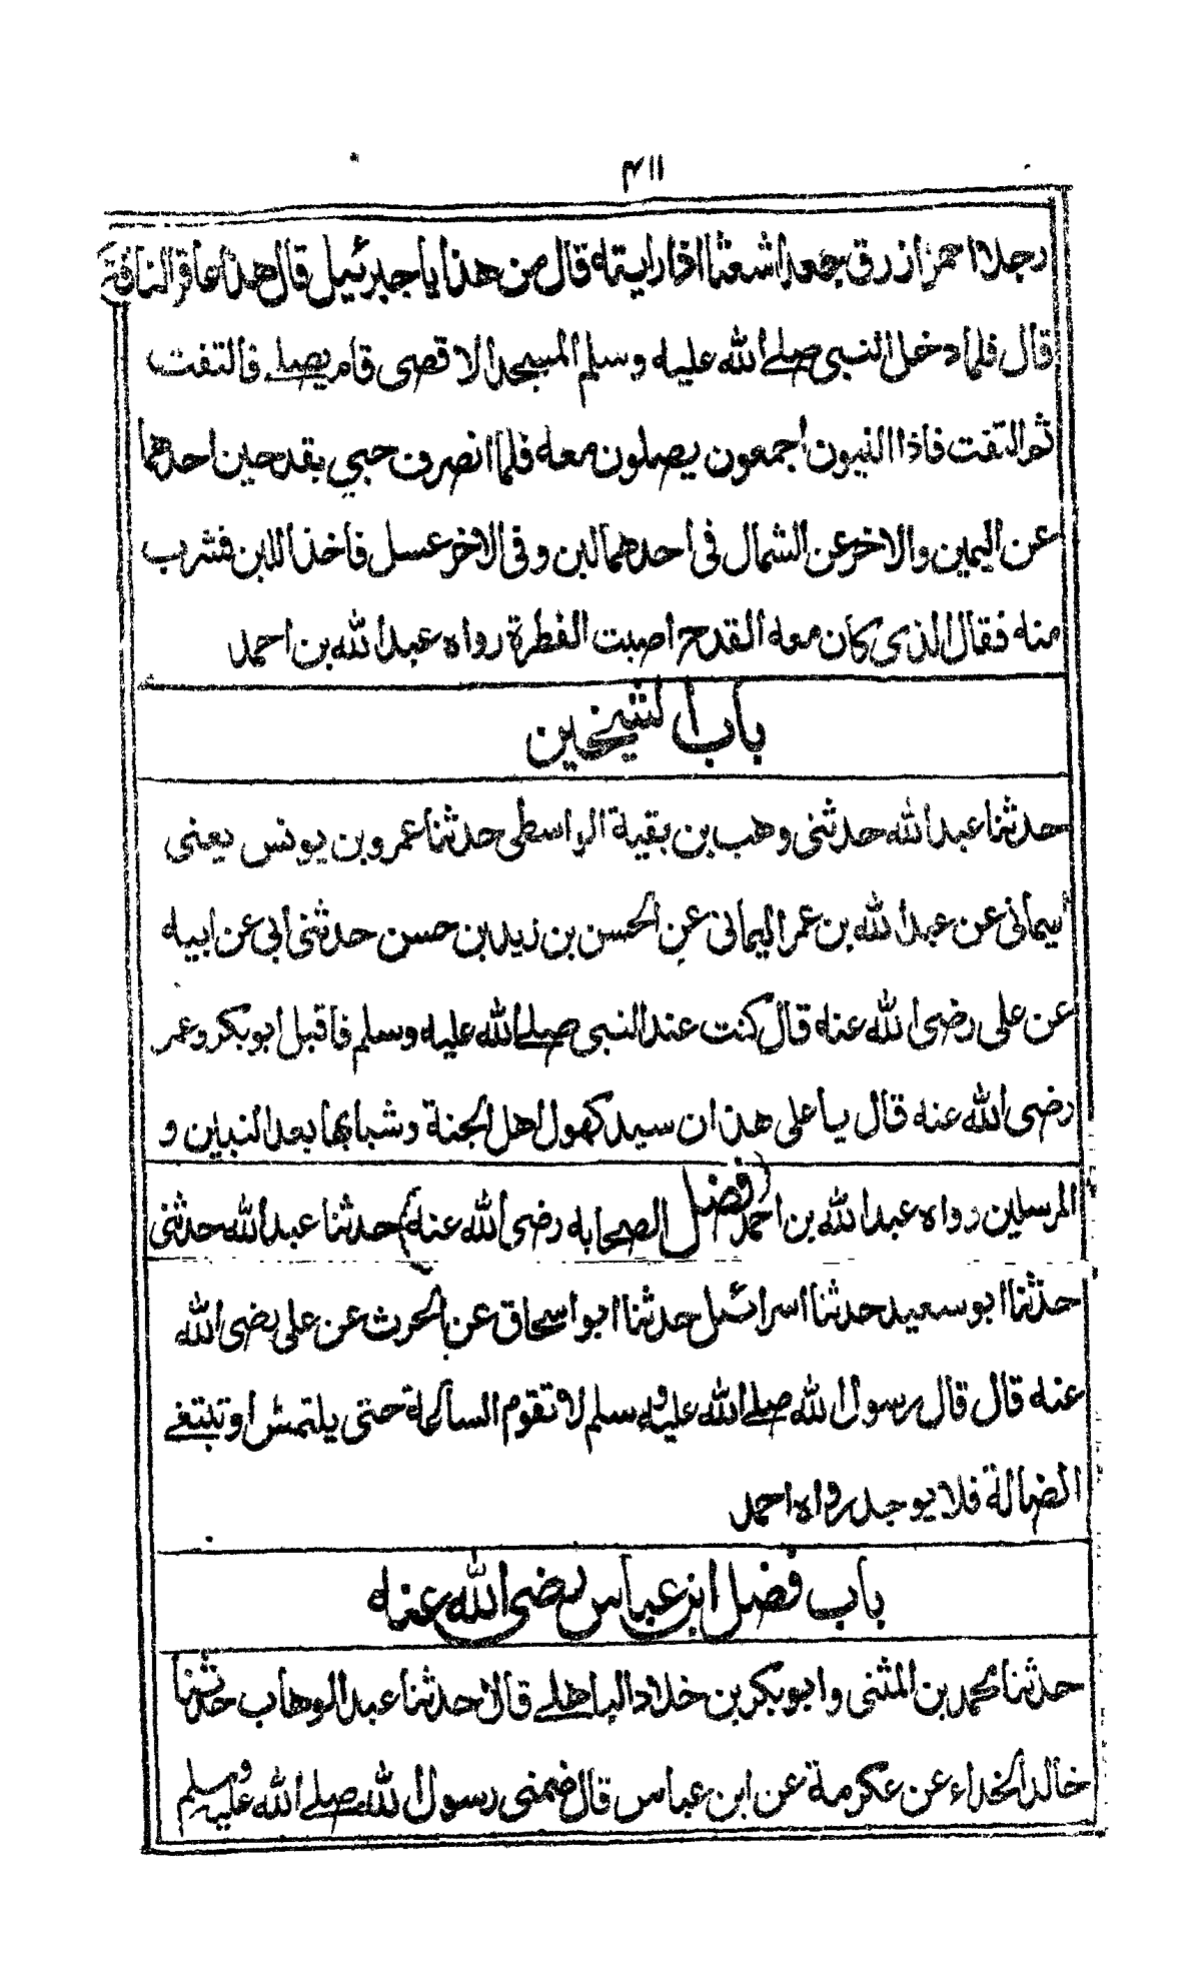 ۴۱۱
رجلا احمر ازرق جعدا شعثا اذا رايته قال من هذا يا جبرئيل قال هذا عاقر الناقة
قال فلما دخل النبى صلے الله عليه وسلم المسجد الاقصى قام يصلے فالتفت
ثم التفت فاذا النبيون اجمعون يصلون معه فلما انصرف جيء بقدحين احدهما
عن اليمين والاخر عن الشمال فى احدهما لبن وفى الاخر عسل فاخذ اللبن فشرب
منه فقال الذى كان معه القدح اصبت الفطرة رواه عبد الله بن احمد
باب الشيخين
حدثنا عبد الله حدثنى وهب بن بقية الواسطى حدثنا عمرو بن يونس يعنى
اليمانى عن عبد الله بن عمر اليمانى عن الحسن بن زيد بن حسن حدثنى ابى عن ابيه
عن على رضى الله عنه قال كنت عند النبى صلے الله عليه وسلم فاقبل ابو بكر وعمر
رضى الله عنه قال يا على هذان سيد كهول اهل الجنة وشبابها بعد النبيين و
المرسلين رواه عبد الله بن احمد (فضل الصحابه رضى الله عنه) حدثنا عبد الله حدثنى
حدثنا ابو سعيد حدثنا اسرائيل حدثنا ابو اسحاق عن الحرث عن على رضى الله
عنه قال قال رسول الله صلے الله عليه وسلم لا تقوم الساعة حتى يلتمش او تبتغے
الضالة فلا يوجد رواه احمد
باب فضل ابن عباس رضى الله عنه
حدثنا محمد بن المثنى وابو بكر بن خلاد الباهلے قالا حدثنا عبد الوهاب حدثنا
خالد الخداء عن عكرمة عن ابن عباس قال ضمنى رسول الله صلے الله عليه وسلم